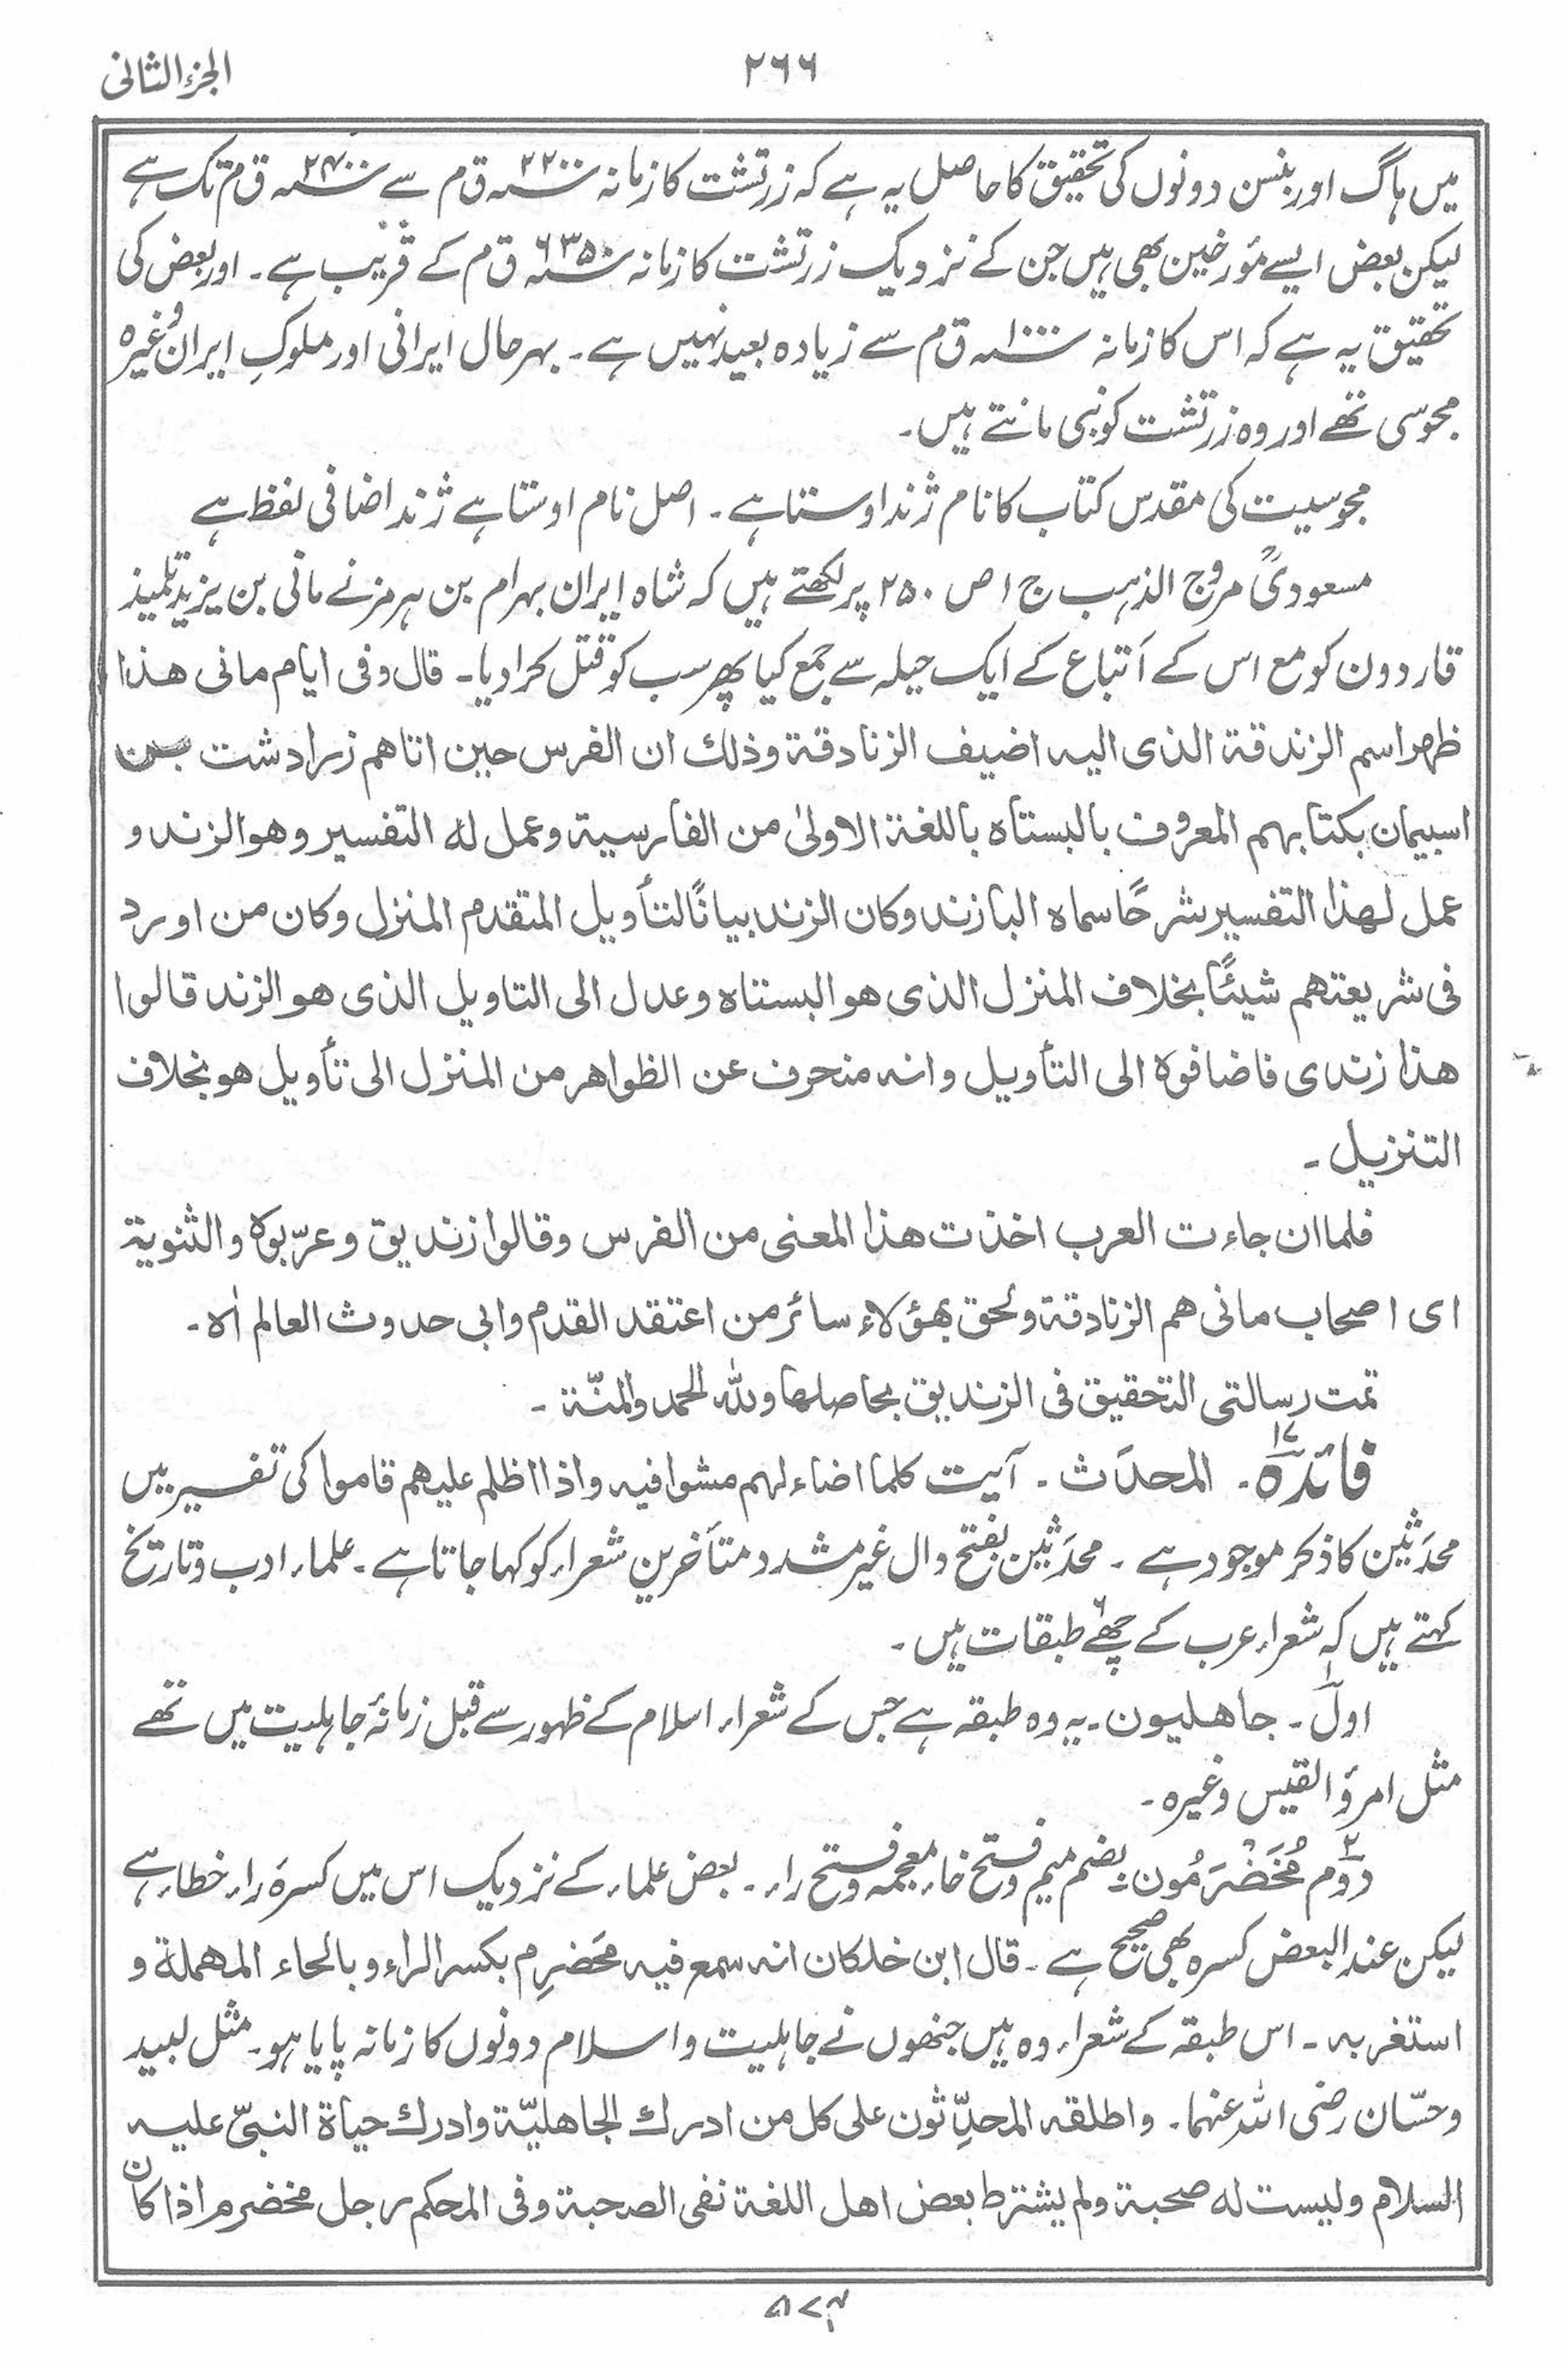 الجزء الثانی
۲۶۶
میں ہاگ اور بنسن دونوں کی تحقیق کا حاصل یہ ہے کہ زرتشت کا زمانہ ۲۲۰۰ ق م سے ۲۴۰۰ ق م تک ہے
لیکن بعض ایسے مؤرخین بھی ہیں جن کے نزدیک زرتشت کا زمانہ ۶۳۵۰ ق م کے قریب ہے ۔ اور بعض کی
تحقیق یہ ہے کہ اس کا زمانہ ۱۰۰۰ ق م سے زیادہ بعید نہیں ہے ۔ بہر حال ایرانی اور ملوکِ ایران وغیرہ
مجوسی تھے اور وہ زرتشت کو نبی مانتے ہیں ۔
مجوسیت کی مقدس کتاب کا نام ژند اوستا ہے ۔ اصل نام اوستا ہے ژند اضافی لفظ ہے
مسعودیؒ مروج الذہب ج ۱ ص ۲۵۰ پر لکھتے ہیں کہ شاہ ایران بہرام بن ہرمز نے مانی بن یزید تلمیذ
قاردون کو مع اس کے اَتباع کے ایک حیلہ سے جمع کیا پھر سب کو قتل کرا دیا ۔ قال وفی ایام مانی هذا
ظهر اسم الزندقة الذی الیه اضیف الزنادقة وذلك ان الفرس حین اتاهم زرادشت بن
اسبیمان بکتابهم المعروف بالبستاه باللغة الاولیٰ من الفارسیة وعمل له التفسیر وهو الزند و
عمل لهذا التفسیر شرحًا سماه البازند وکان الزند بیانًا لتأویل المتقدم المنزل وکان من اورد
فی شریعتهم شیئًا بخلاف المنزل الذی هو البستاه وعدل الی التاویل الذی هو الزند قالوا
هذا زندی فاضافوه الی التأویل وانه منحرف عن الظواهر من المنزل الی تأویل هو بخلاف
التنزیل ۔
فلما ان جاءت العرب اخذت هذا المعنی من الفرس وقالوا زندیق وعرّبوه والثنویة
ای اصحاب مانی هم الزنادقة ولحق بهؤلاء سائر من اعتقد القدم وابی حدوث العالم اھ ۔
تمت رسالتی التحقیق فی الزندیق بحاصلها ولله الحمد والمنّة ۔
فائدہ ۱۷ ۔ المحدَث ۔ آیت کلما اضاء لهم مشوا فیه واذا اظلم علیهم قاموا کی تفسیر میں
محدَثین کا ذکر موجود ہے ۔ محدَثین بفتح دال غیر مشدد متأخرین شعراء کو کہا جاتا ہے ۔ علماء ادب وتاریخ
کہتے ہیں کہ شعراء عرب کے چھے ۶ طبقات ہیں ۔
اول ۱ ۔ جاهلیون ۔ یہ وہ طبقہ ہے جس کے شعراء اسلام کے ظہور سے قبل زمانۂ جاہلیت میں تھے
مثل امرؤ القیس وغیرہ ۔
دوم ۲ مُخَضْرَمُون : بضم میم وفتح خاء معجمہ وفتح راء ۔ بعض علماء کے نزدیک اس میں کسرۂ راء خطاء ہے
لیکن عند البعض کسرہ بھی صحیح ہے ۔ قال ابن خلکان انه سمع فیه محَضرِم بکسر الراء وبالحاء المهملة و
استغربه ۔ اس طبقہ کے شعراء وہ ہیں جنھوں نے جاہلیت و اسلام دونوں کا زمانہ پایا ہو ۔ مثل لبید
وحسّان رضی اللہ عنہما ۔ واطلقه المحدِّثون علی کل من ادرك الجاهلیّة وادرك حیاة النبیّ علیه
السلام ولیست له صحبة ولم یشترط بعض اهل اللغة نفی الصحبة وفی المحکم رجل مخضرم اذا کان